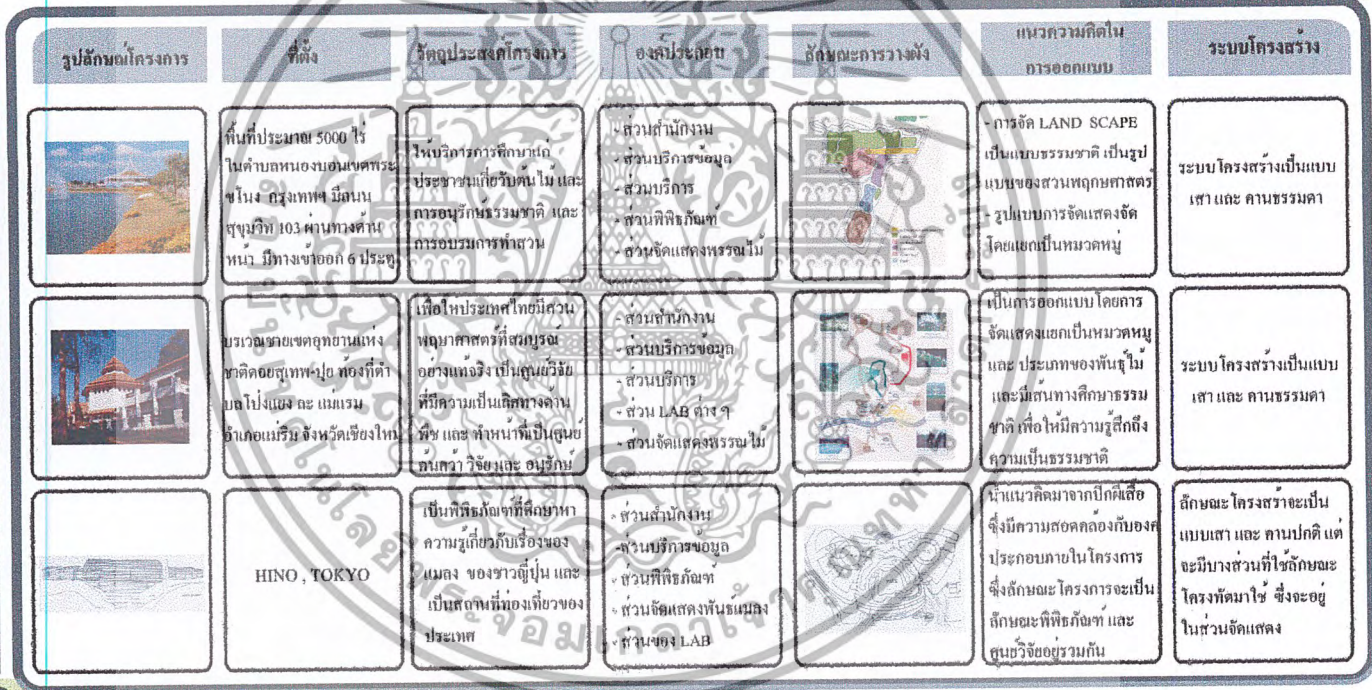 รูปลักษณ์โครงการ
ที่ตั้ง
วัตถุประสงค์โครงการ
องค์ประกอบ
ลักษณะการวางผัง
แนวความคิดใน
การออกแบบ
ระบบโครงสร้าง
พื้นที่ประมาณ 5000 ไร่
ในตำบลหนองบอนเขตพระ
ขโนง กรุงเทพฯ มีถนน
สุขุมวิท 103 ผ่านทางด้าน
หน้า มีทางเข้าออก 6 ประตู
ให้บริการการศึกษาแก่
ประชาชนเกี่ยวับต้นไม้ และ
การอนุรักษ์ธรรมชาติ และ
การอบรมการทำสวน
- ส่วนสำนักงาน
- ส่วนบริการข้อมูล
- ส่วนบริการ
- ส่วนพิพิธภัณฑ์
- ส่วนจัดแสดงพรรณไม้
- การจัด LAND SCAPE
เป็นแบบธรรมชาติ เป็นรูป
แบบของสวนพฤกษศาสตร์
- รูปแบบการจัดแสดงจัด
โดยแยกเป็นหมวดหมู่
ระบบโครงสร้างเป็นแบบ
เสา และ คานธรรมดา
บรเวณชายเขตอุทยานแห่ง
ชาติดอยสุเทพ-ปุย ท้องที่ตำ
บลโป่งแยง ละ แมแรม
อำเภอแม่ริม จังหวัดเชียงใหม่
เพื่อให้ประเทศไทยมีสวน
พฤษาศาสตร์ที่สมบูรณ์
อย่างแท้จริง เป็นศูนย์วิจัย
ที่มีความเป็นเลิศทางด้าน
พืช และ ทำหน้าที่เป็นศูนย์
ค้นคว้า วิจัย และ อนุรักษ์
- ส่วนสำนักงาน
- ส่วนบริการข้อมูล
- ส่วนบริการ
- ส่วน LAB ต่าง ๆ
- ส่วนจัดแสดงพรรณไม้
เป็นการออกแบบโดยการ
จัดแสดงแยกเป็นหมวดหมู่
และ ประเภทของพันธุ์ไม้
และมีเส้นทางศึกษาธรรม
ชาติ เพื่อให้มีความรู้สึกถึง
ความเป็นธรรมชาติ
ระบบโครงสร้างเป็นแบบ
เสา และ คานธรรมดา
HINO , TOKYO
เป็นพิพิธภัณฑ์ที่ศึกษาหา
ความรู้เกี่ยวกับเรื่องของ
แมลง ของชาวญี่ปุ่น และ
เป็นสถานที่ท่องเที่ยวของ
ประเทศ
- ส่วนสำนักงาน
- ส่วนบริการข้อมูล
- ส่วนพิพิธภัณฑ์
- ส่วนจัดแสดงพันธแมลง
- ส่วนของ LAB
นำแนวคิดมาจากปีกผีเสื้อ
ซึ่งมีความสอดคล้องกับองค์
ประกอบภายในโครงการ
ซึ่งลักษณะโครงการจะเป็น
ลักษณะพิพิธภัณฑ์ และ
ศูนย์วิจัยอยู่รวมกัน
ลักษณะโครงสร้าจะเป็น
แบบเสา และ คานปกติ แต่
จะมีบางส่วนที่ใช้ลักษณะ
โครงทัดมาใช้ ซึ่งจะอยู่
ในส่วนจัดแสดง